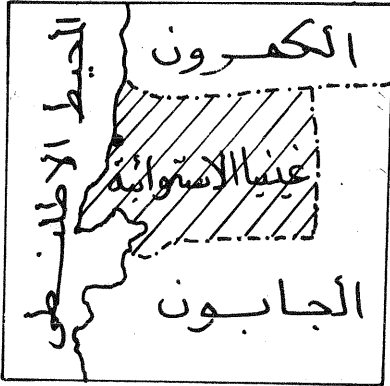 الكمرون
المحيط الاطلسطى
غينيا الاستوائية
الجابون